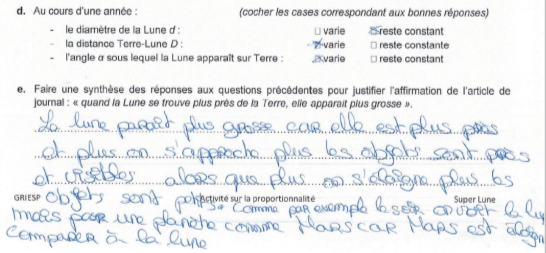 d. Au cours d'une année : (cocher les cases correspondant aux bonnes réponses)
- le diamètre de la Lune d : ☐ varie ☒ reste constant
- la distance Terre-Lune D : ☒ varie ☐ reste constante
- l'angle α sous lequel la Lune apparaît sur Terre : ☒ varie ☐ reste constant
e. Faire une synthèse des réponses aux questions précédentes pour justifier l'affirmation de l'article de
journal : « quand la Lune se trouve plus près de la Terre, elle apparait plus grosse ».
La lune parait plus grosse car elle est plus près
et plus on s'approche plus les objets sont près
et visibles alors que plus on s'éloigne plus les
GRIESP Activité sur la proportionnalité Super Lune
objets sont petits. Comme par exemple le soir on voit la lu
mais pas une planète comme Mars car Mars est éloign
comparer à la lune